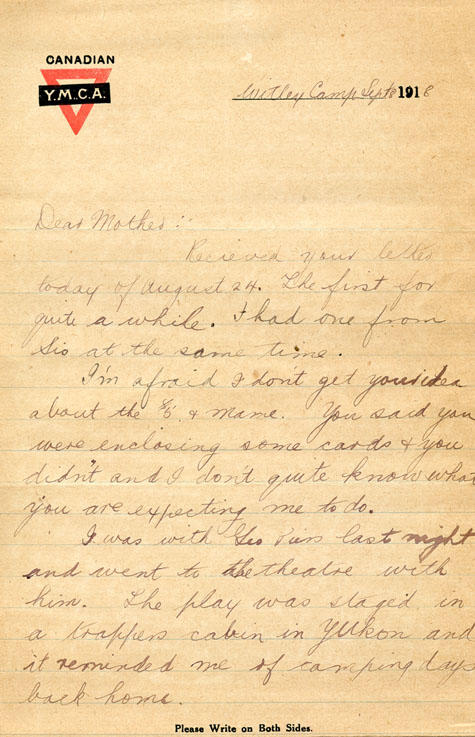 CANADIAN
Y.M.C.A.
Witley Camp Sept 8 1918
Dear Mother:
Recieved your letter
today of August 24. The first for
quite a while. I had one from
Sis at the same time.
I'm afraid I don't get your idea
about the & Mame. You said you
were enclosing some cards & you
didn't and I don't quite know what
you are expecting me to do.
I was with Geo last night
and went to the theatre with
him. The play was staged in
a trappers cabin in Yukon and
it reminded me of camping days
back home.
Please Write on Both Sides.